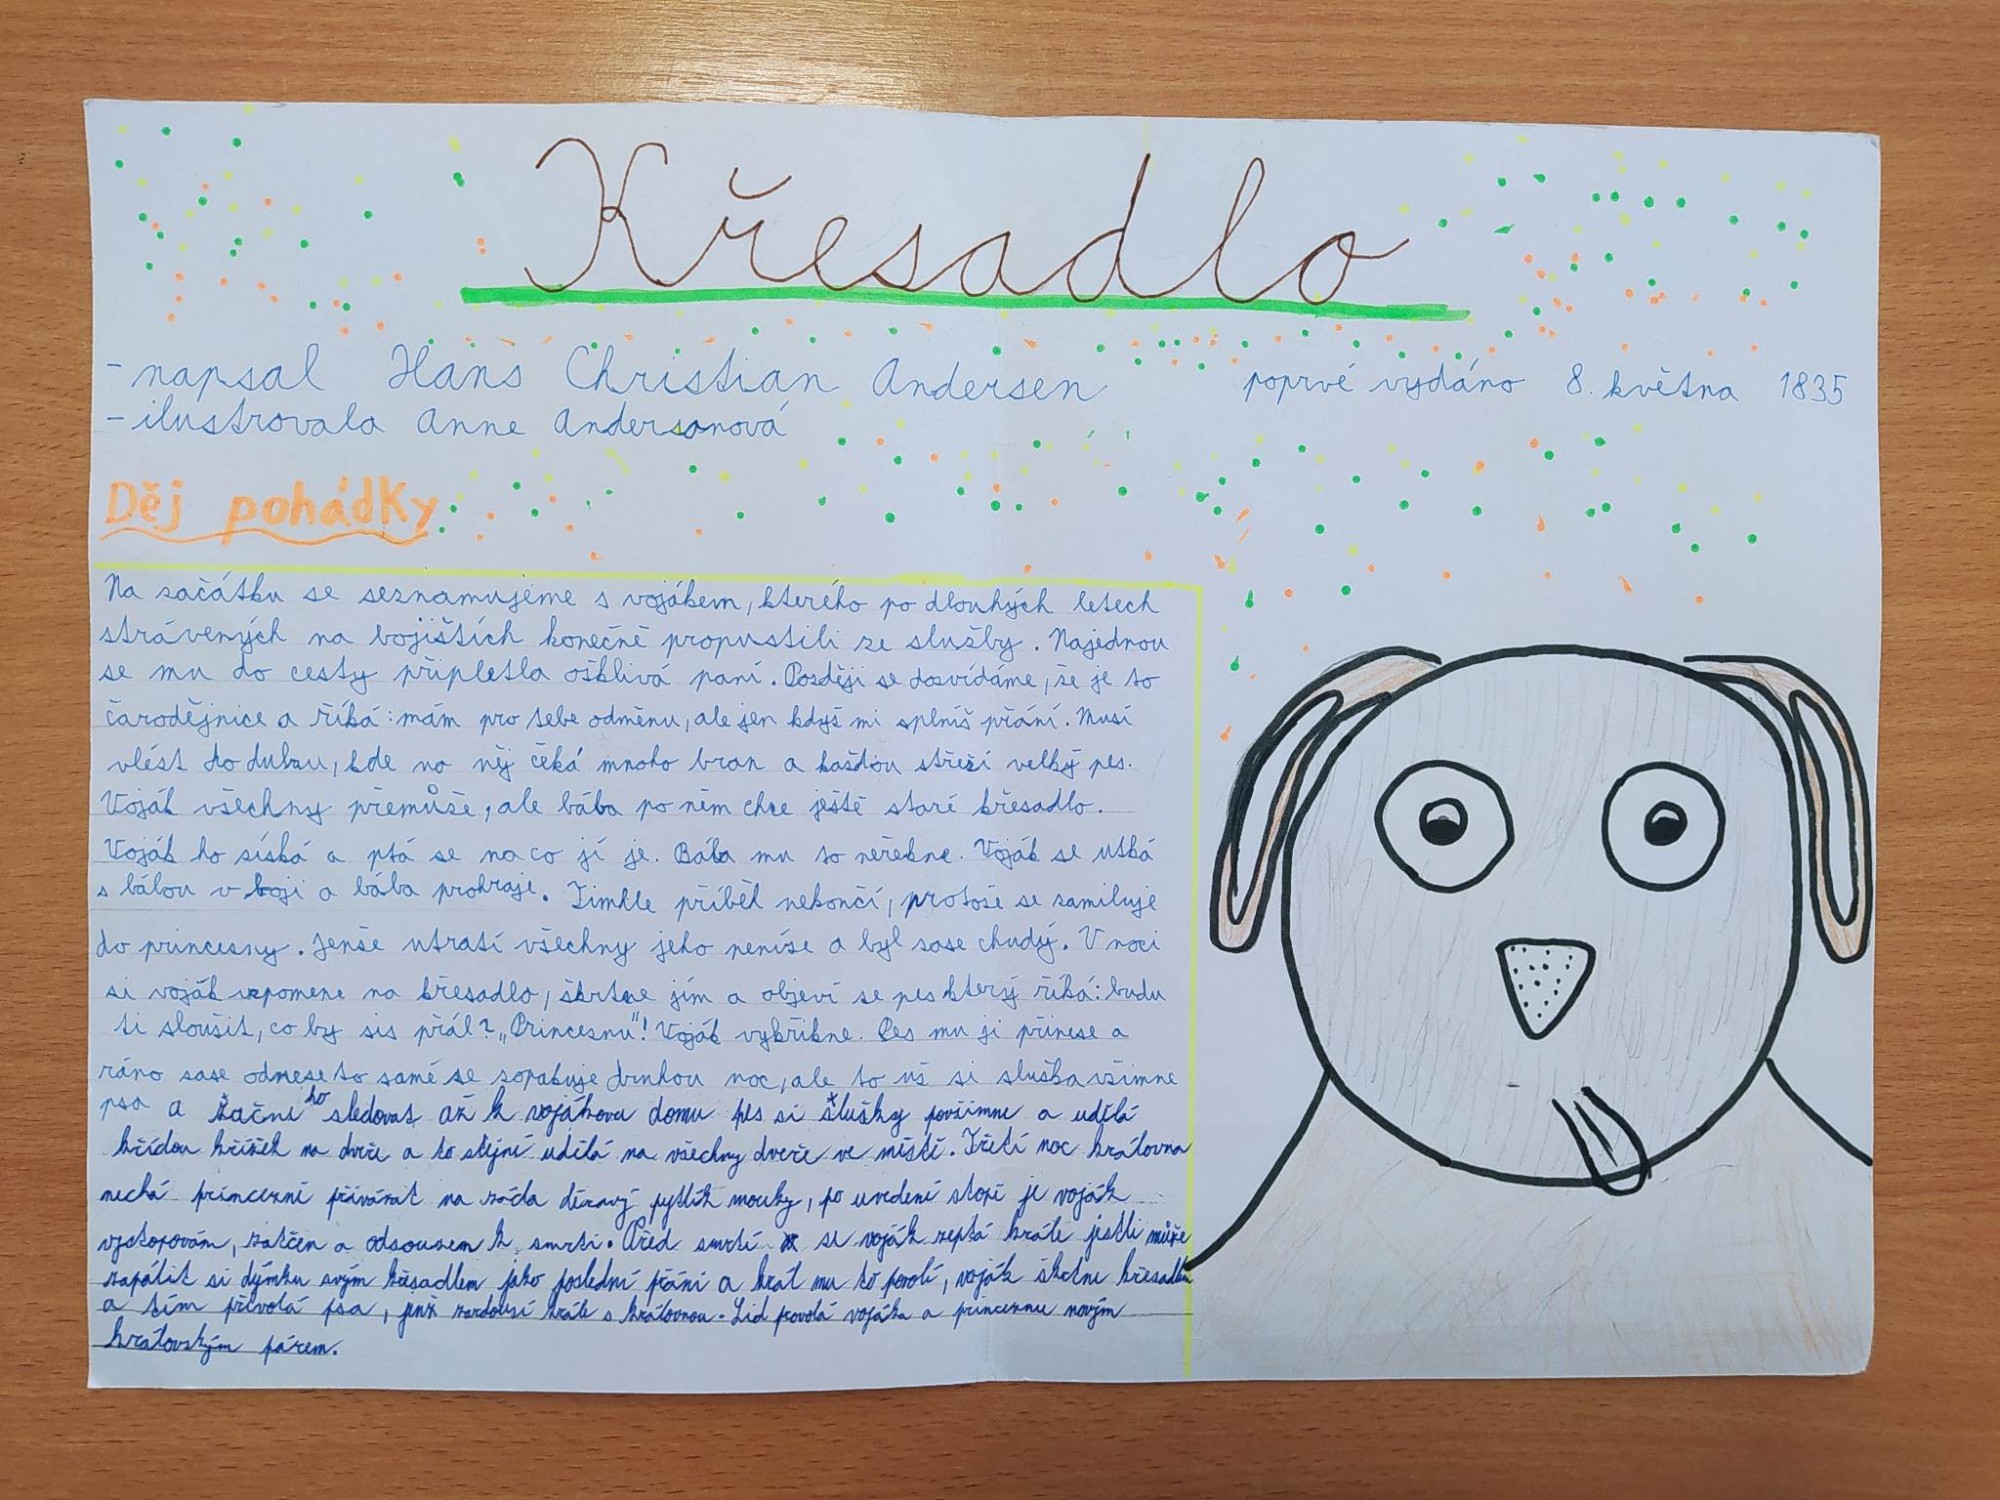 Křesadlo
- napsal Hans Christian Andersen
poprvé vydáno 8. května 1835
- ilustrovala Anne Andersonová
Děj pohádky
Na začátku se seznamujeme s vojákem, kterého po dlouhých letech
strávených na bojištích konečně propustili ze služby. Najednou
se mu do cesty připletla ošklivá paní. Později se dozvídáme, že je to
čarodějnice a říká: mám pro tebe odměnu, ale jen když mi splníš přání. Musí
vlést do dubu, kde na něj čeká mnoho bran a každou střeží velký pes.
Voják všechny přemůže, ale bába po něm chce ještě staré křesadlo.
Voják ho získá a ptá se na co jí je. Bába mu to neřekne. Voják se utká
s bábou v boji a bába prohraje. Tímhle příběh nekončí, protože se zamiluje
do princezny. Jenže utratí všechny jeho peníze a byl zase chudý. V noci
si voják vzpomene na křesadlo, škrtne jím a objeví se pes který říká: budu
ti sloužit, co by sis přál? „Princeznu"! Voják vykřikne. Pes mu ji přinese a
ráno zase odnese to samé se zopakuje druhou noc, ale to už si služka všimne
psa a začne ho sledovat až k vojákovu domu pes si služky povšimne a udělá
křídou křížek na dveře a to stejné udělá na všechny dveře ve městě. Třetí noc královna
nechá princezně přivázat na záda děravý pytlík mouky, po uvedení stopě je voják
vystopován, zatčen a odsouzem k smrti. Před smrtí se voják zeptá krále jestli může
zapálit si dýmku svým křesadlem, jako poslední přání a král mu to povolí, voják škrtne křesadlem
a tím přivolá psa, jenž zardousí krále s královnou. Lid povolá vojáka a princeznu novým
královským párem.